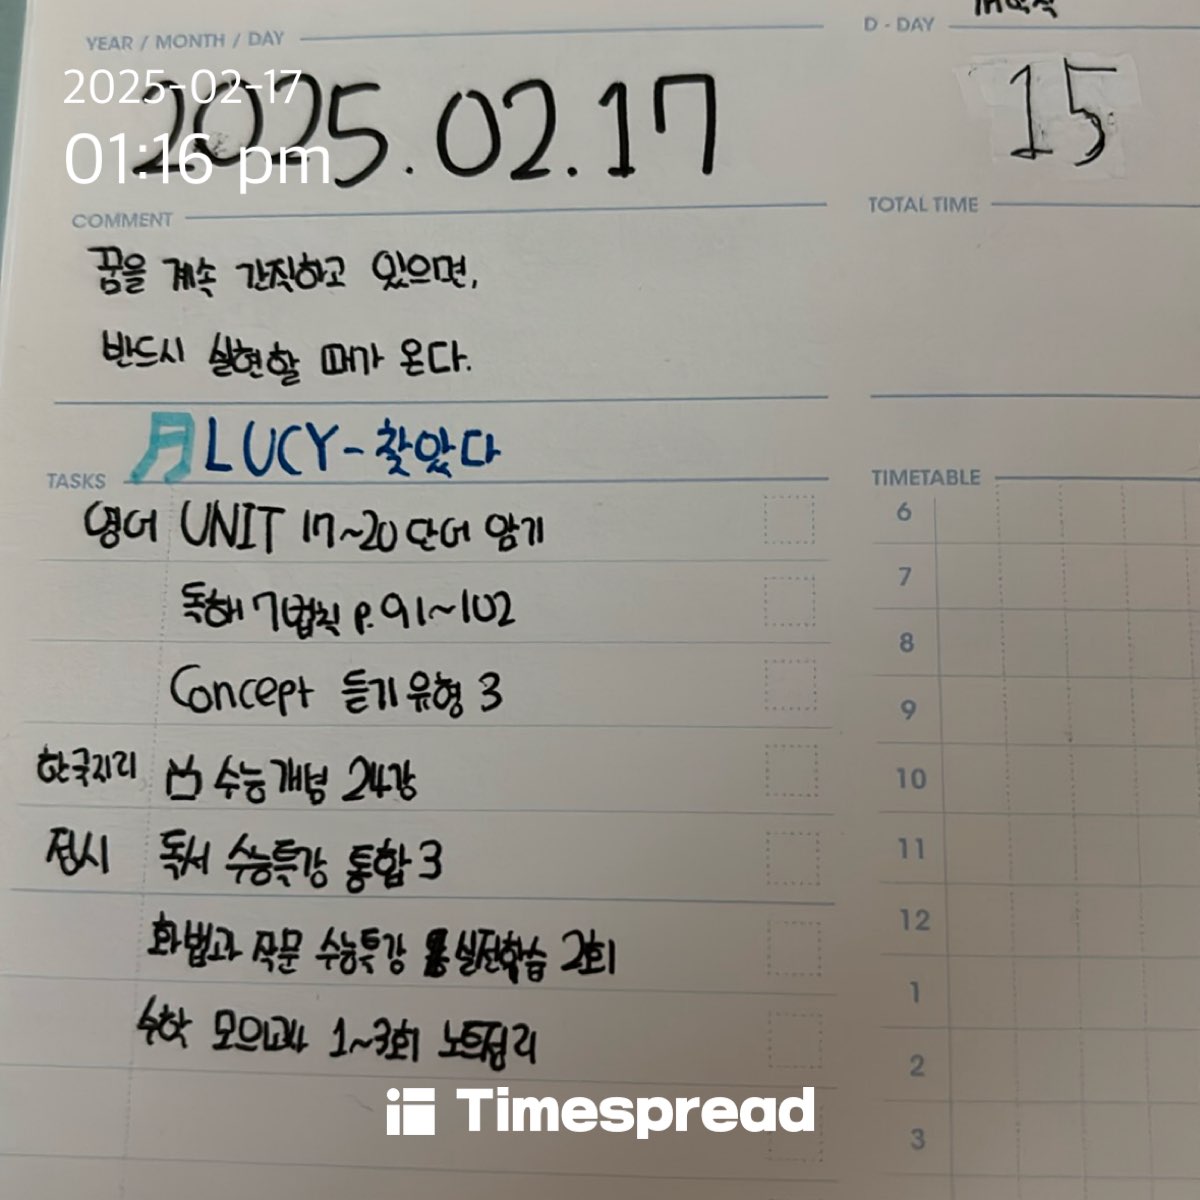 YEAR / MONTH / DAY
2025-02-17
2025.02.17
01:16 pm
D - DAY
15
COMMENT
꿈을 계속 간직하고 있으면,
반드시 실현할 때가 온다.
TOTAL TIME
LUCY - 찾았다
TASKS
영어 UNIT 17~20 단어 암기
독해 기법칙 p.91~102
Concept 듣기 유형 3
한국지리 수능개념 24강
정시 독서 수능특강 통합 3
화법과 작문 수능특강 실전학습 2회
수학 모의고사 1~3회 노트정리
TIMETABLE
6
7
8
9
10
11
12
1
2
3
Timespread